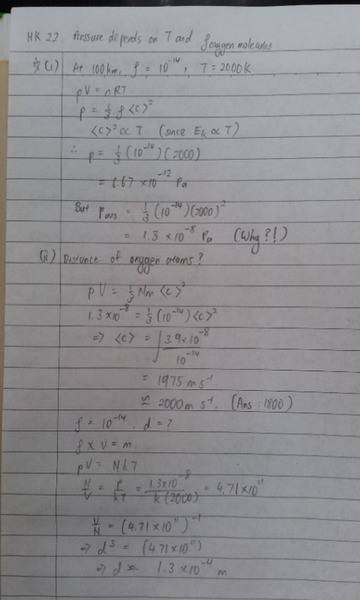 HK 22 Pressure depends on T and ρ oxygen molecules
(i) At 100km, ρ = 10⁻¹⁴, T = 2000K
pV = nRT
p = 1/3 ρ <c>²
<c>² ∝ T (since Ek ∝ T)
∴ p = 1/3 (10⁻¹⁴)(2000)
= 6.67 × 10⁻¹² Pa
But Pans = 1/3 (10⁻¹⁴)(2000)²
= 1.3 × 10⁻⁸ Pa (Why?!)
Q) Distance of oxygen atoms?
pV = 1/3 Nm <c>²
1.3×10⁻⁸ = 1/3 (10⁻¹⁴) <c>²
⇒ <c> = √(3.9×10⁻⁸ / 10⁻¹⁴)
= 1975 m s⁻¹
≈ 2000 m s⁻¹. (Ans : 1800)
ρ = 10⁻¹⁴. d = ?
ρ × V = m.
pV = NkT
N/V = p/kT = 1.3×10⁻⁸ / k(2000) = 4.71×10¹¹
V/N = (4.71×10¹¹)⁻¹
⇒ d³ = (4.71×10¹¹)
⇒ d ≈ 1.3×10⁻⁴ m